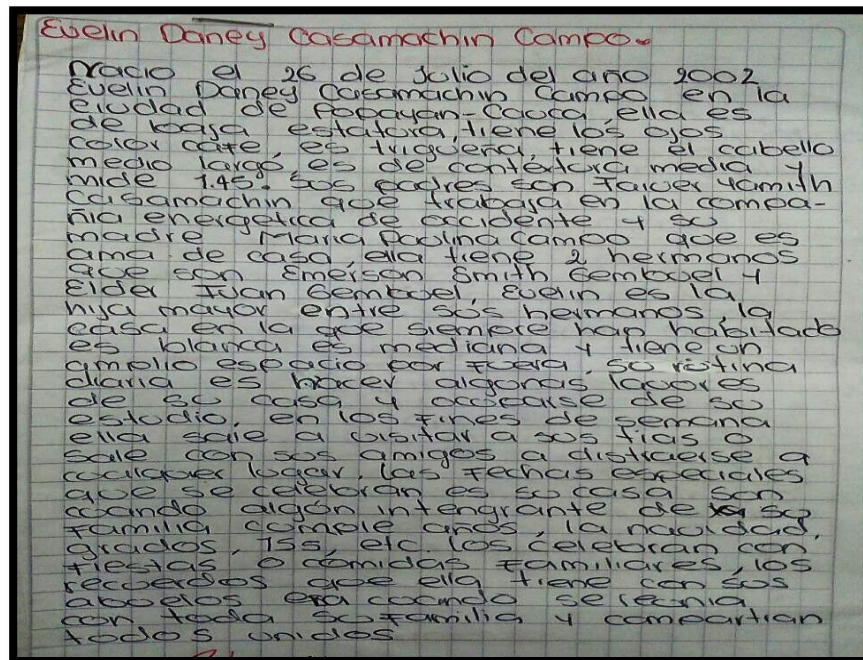 Evelin Daney Casamachin Campo.
Nacio el 26 de Julio del año 2002
Evelin Daney Casamachin Campo en la
ciudad de Popayan-Cauca, ella es
de baja estatura, tiene los ojos
color cafe, es trigueña, tiene el cabello
medio largo, es de contextura media y
mide 1.45. Sus padres son Faiver Yamith
Casamachin que trabaja en la compa-
ñia energetica de occidente y su
madre Maria Paulina Campo que es
ama de casa, ella tiene 2 hermanos
que son Emerson Smith Gembuel y
Elder Juan Gembuel, Evelin es la
hija mayor entre sus hermanos, la
casa en la que siempre han habitado
es blanca es mediana y tiene un
amplio espacio por fuera, su rutina
diaria es hacer algunas labores
de su casa y ocuparse de su
estudio, en los fines de semana
ella sale a visitar a sus tias o
sale con sus amigos a distraerse a
cualquier lugar, las fechas especiales
que se celebran es su casa son
cuando algún intengrante de su
familia cumple años, la navidad,
grados, 15s, etc. los celebran con
fiestas o comidas familiares, los
recuerdos que ella tiene con sus
abuelos era cuando se reunia
con toda su familia y compartian
todos unidos